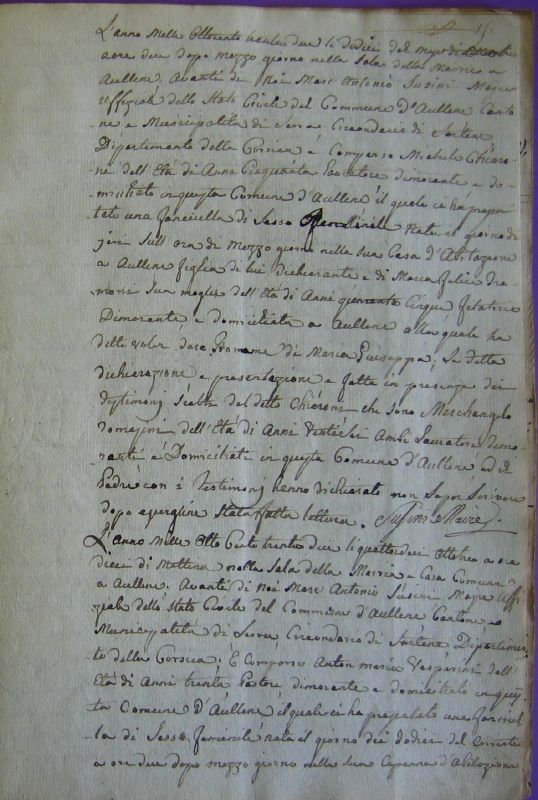 15.
L'anno Mille Ottocento trenta due li dodici del mese di Ottobre
a ore due dopo mezzo giorno nella Sala della Mairie a
Aullene Avanti di Noi Marc Antonio Susini Maire
Uffiziale dello Stato Civile del Commune d'Aullene Canto
ne e Municipalità di Serra Circondario di Sartena
Dipartimento della Corsica e Comparso Michele Chiaro
ni dell'Età di Anni Cinquanta Lavratore dimorante e do
miciliato in questa Comune d'Aullene il quale ci ha presen
tato una fanciulla di Sesso Nata il giorno di
jeri Sull'ora di mezzo giorno nella sua Casa d'Abitazione
a Aullene figlia di lui dichiarante e di Maria felice
Sua moglie dell'Età di Anni quaranta Cinque filatrice
Dimorante e domiciliata a Aullene alla quale ha
detto voler dare Pronome di Maria Giuseppa, La detta
dichiarazione e presentazione e fatta in presenza dei
Testimonj Scelti dal detto Chiaroni che sono Marchangelo
dell'Età di Anni Ambi Lavratori Dimo
ranti e Domiciliati in questa Comune d'Aullene ed il
Padre con i Testimonj hanno dichiarato non Saper Scrivere
dopo Stata fatta lettura. Susini Maire
L'anno Mille Otto Cento trenta due li quattordici Ottobre a ore
dieci di Mattina nella Sala della Mairia e Casa Comune
a Aullene. Avanti di Noi Marc Antonio Susini Maire Uffi
ziale dello Stato Civile del Commune d'Aullene Cantone e
Municipalità di Serra Circondario di Sartena Dipartimen
to della Corsica: È Comparso Anton maria Vesperini dell'
Età di Anni trenta Pastore dimorante e domiciliato in ques
ta Comune d'Aullene il quale ci ha presentato una fanciul
la di Sesso feminile nata il giorno dei dodici del Corrente
a ore due dopo mezzo giorno nella sua Capanna d'Abitazione